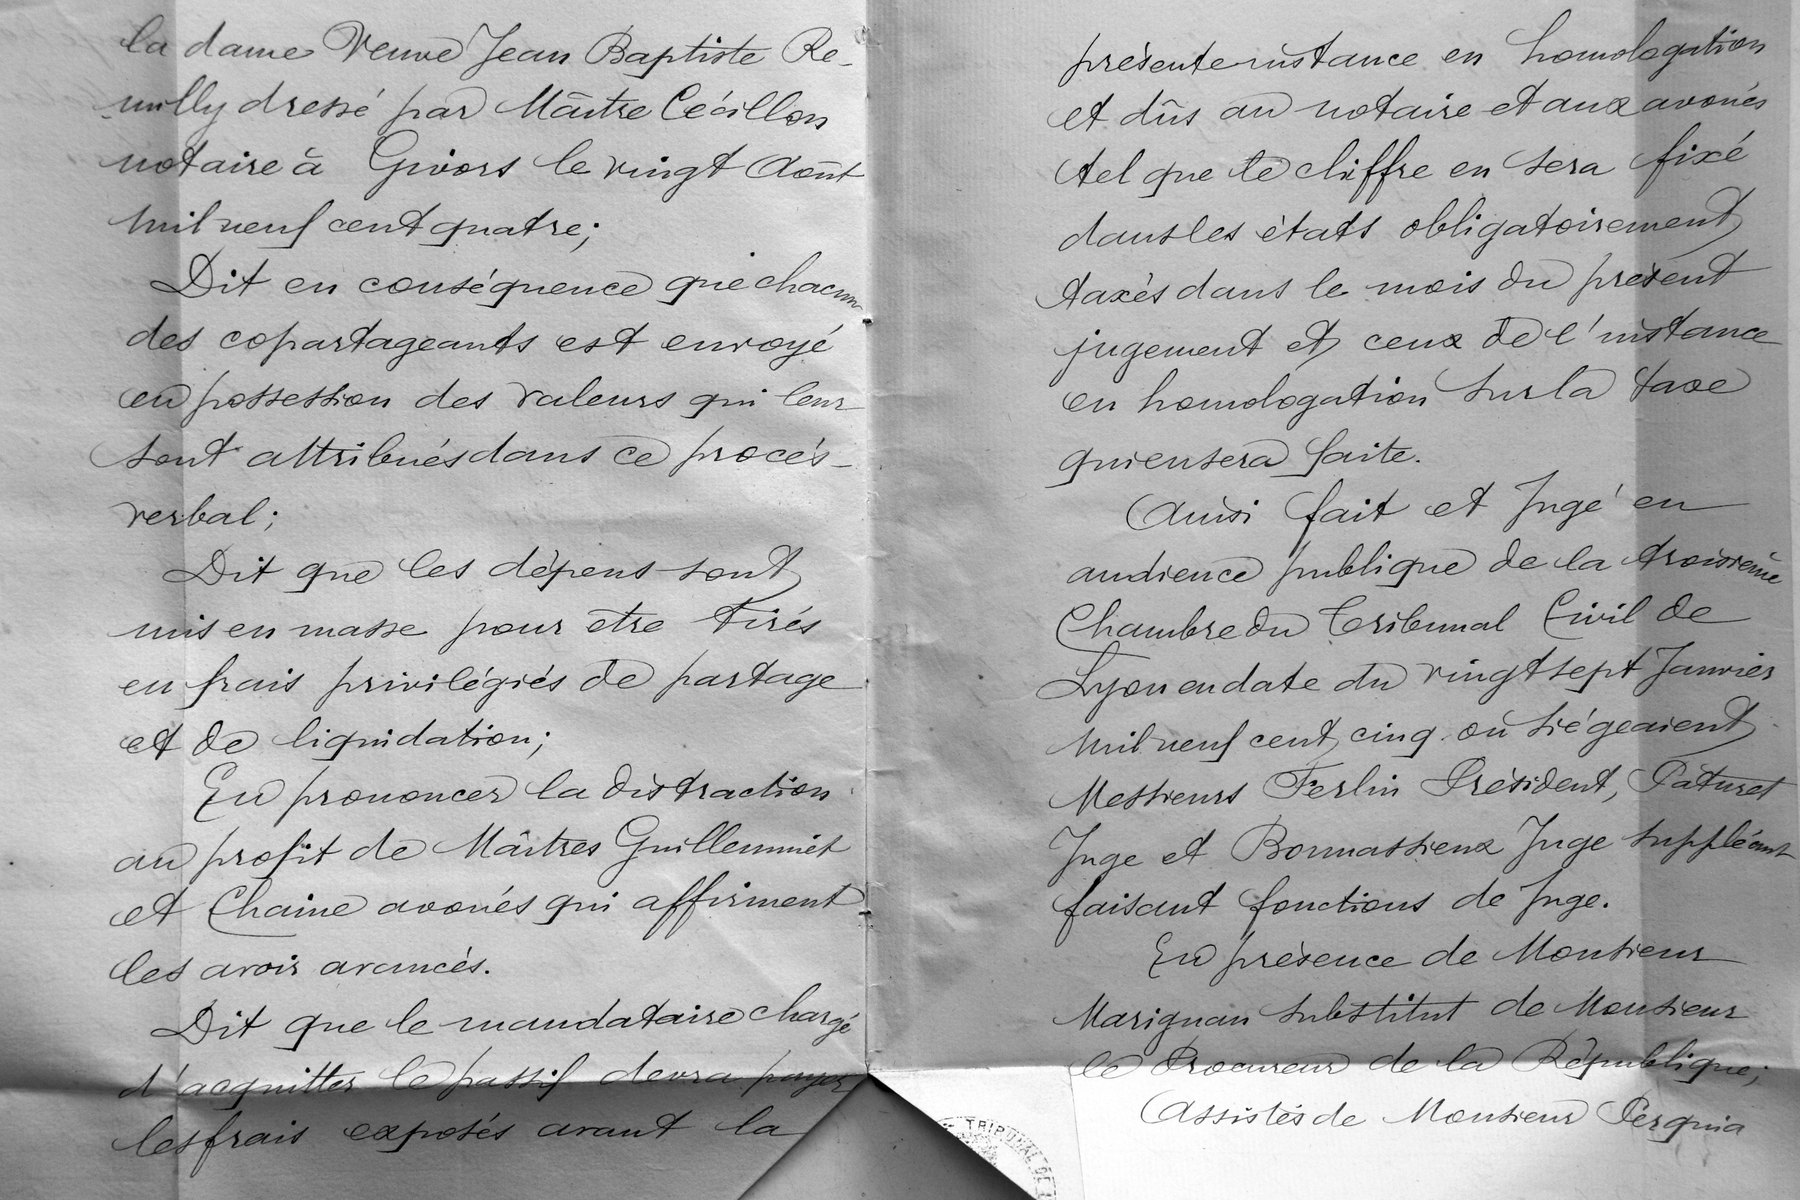 la dame Veuve Jean Baptiste Re-
milly dressé par Maître Cécillon
notaire à Givors le vingt Août
mil neuf cent quatre;
Dit en conséquence que chacun
des copartageants est envoyé
en possession des valeurs qui leur
sont attribués dans ce procés-
verbal;
Dit que les dépens sont
mis en masse pour etre tirés
en frais privilégiés de partage
et de liquidation;
En prononcer la distraction
au profit de Maîtres Guillemmet
et Chaine avoués qui affirment
les avoir avancés.
Dit que le mandataire chargé
d'acquitter le passif devra payer
les frais exposés avant la
présente instance en homologation
et dûs au notaire et aux avoués
tel que le chiffre en sera fixé
dans les états obligatoirement
taxés dans le mois du présent
jugement et ceux de l'instance
en homologation sur la taxe
qui en sera faite.
Ainsi fait et Jugé en
audience publique de la troisième
Chambre du Tribunal Civil de
Lyon en date du vingt sept Janvier
mil neuf cent cinq où siégeaient
Messieurs Ferlin Président, Pâturet
Juge et Bonnassieux Juge suppléant
faisant fonctions de Juge.
En présence de Monsieur
Marignan substitut de Monsieur
le Procureur de la République;
Assistés de Monsieur Perquia
TRIBUNAL DE